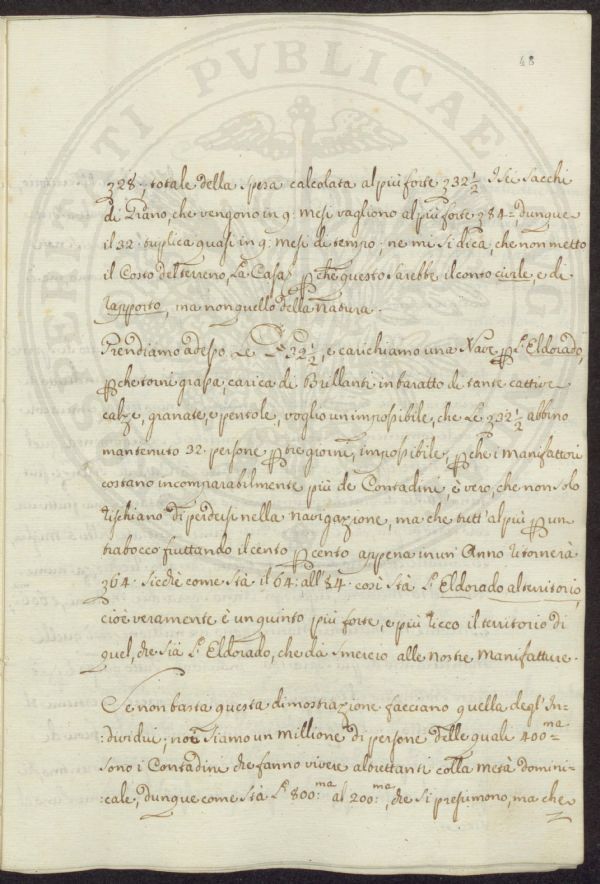 48
328. totale della spesa calcolata al più forte 332½ I sei Sacchi
di Grano, che vengono in 9. mesi vagliono al più forte 384=, dunque
il 32. triplica quasi in 9. mesi di tempo; ne mi si dica, che non metto
il Costo del terreno, La Casa, pche questo sarebbe il conto civile, e di
rapporto, ma non quello della Natura.
Prendiamo adesso Le 332½, e carichiamo una Nave p L'Eldorado,
pche torni grassa, carica di Brillanti in baratto di tante cattive
calze, granate, e pentole, voglio un impossibile, che Le 332½ abbino
mantenuto 32. persone p tre giorni, impossibile, pche i Manifattori
costano incomparabilmente più de Contadini, è vero, che non solo
rischiano di perdersi nella Navigazione, ma che tutt'al più p un
trabocco fruttando il cento p cento appena in un'Anno ritornerà
364. sicchè come stà il 64. all'84. così stà L'Eldorado al territorio,
cioè veramente è un quinto più forte, e più ricco il territorio di
quel, che sia L'Eldorado, che dà smercio alle nostre Manifatture.
Se non basta questa dimostrazione facciano quella degl'In-
dividui; noi siamo un millione di persone delle quali 400=ma
sono i Contadini che fanno vivere altrettanti colla metà domini-
:cale, dunque come stà L'800:ma al 200:ma, che si presumono, ma che
SPERITATI PVBLICAE